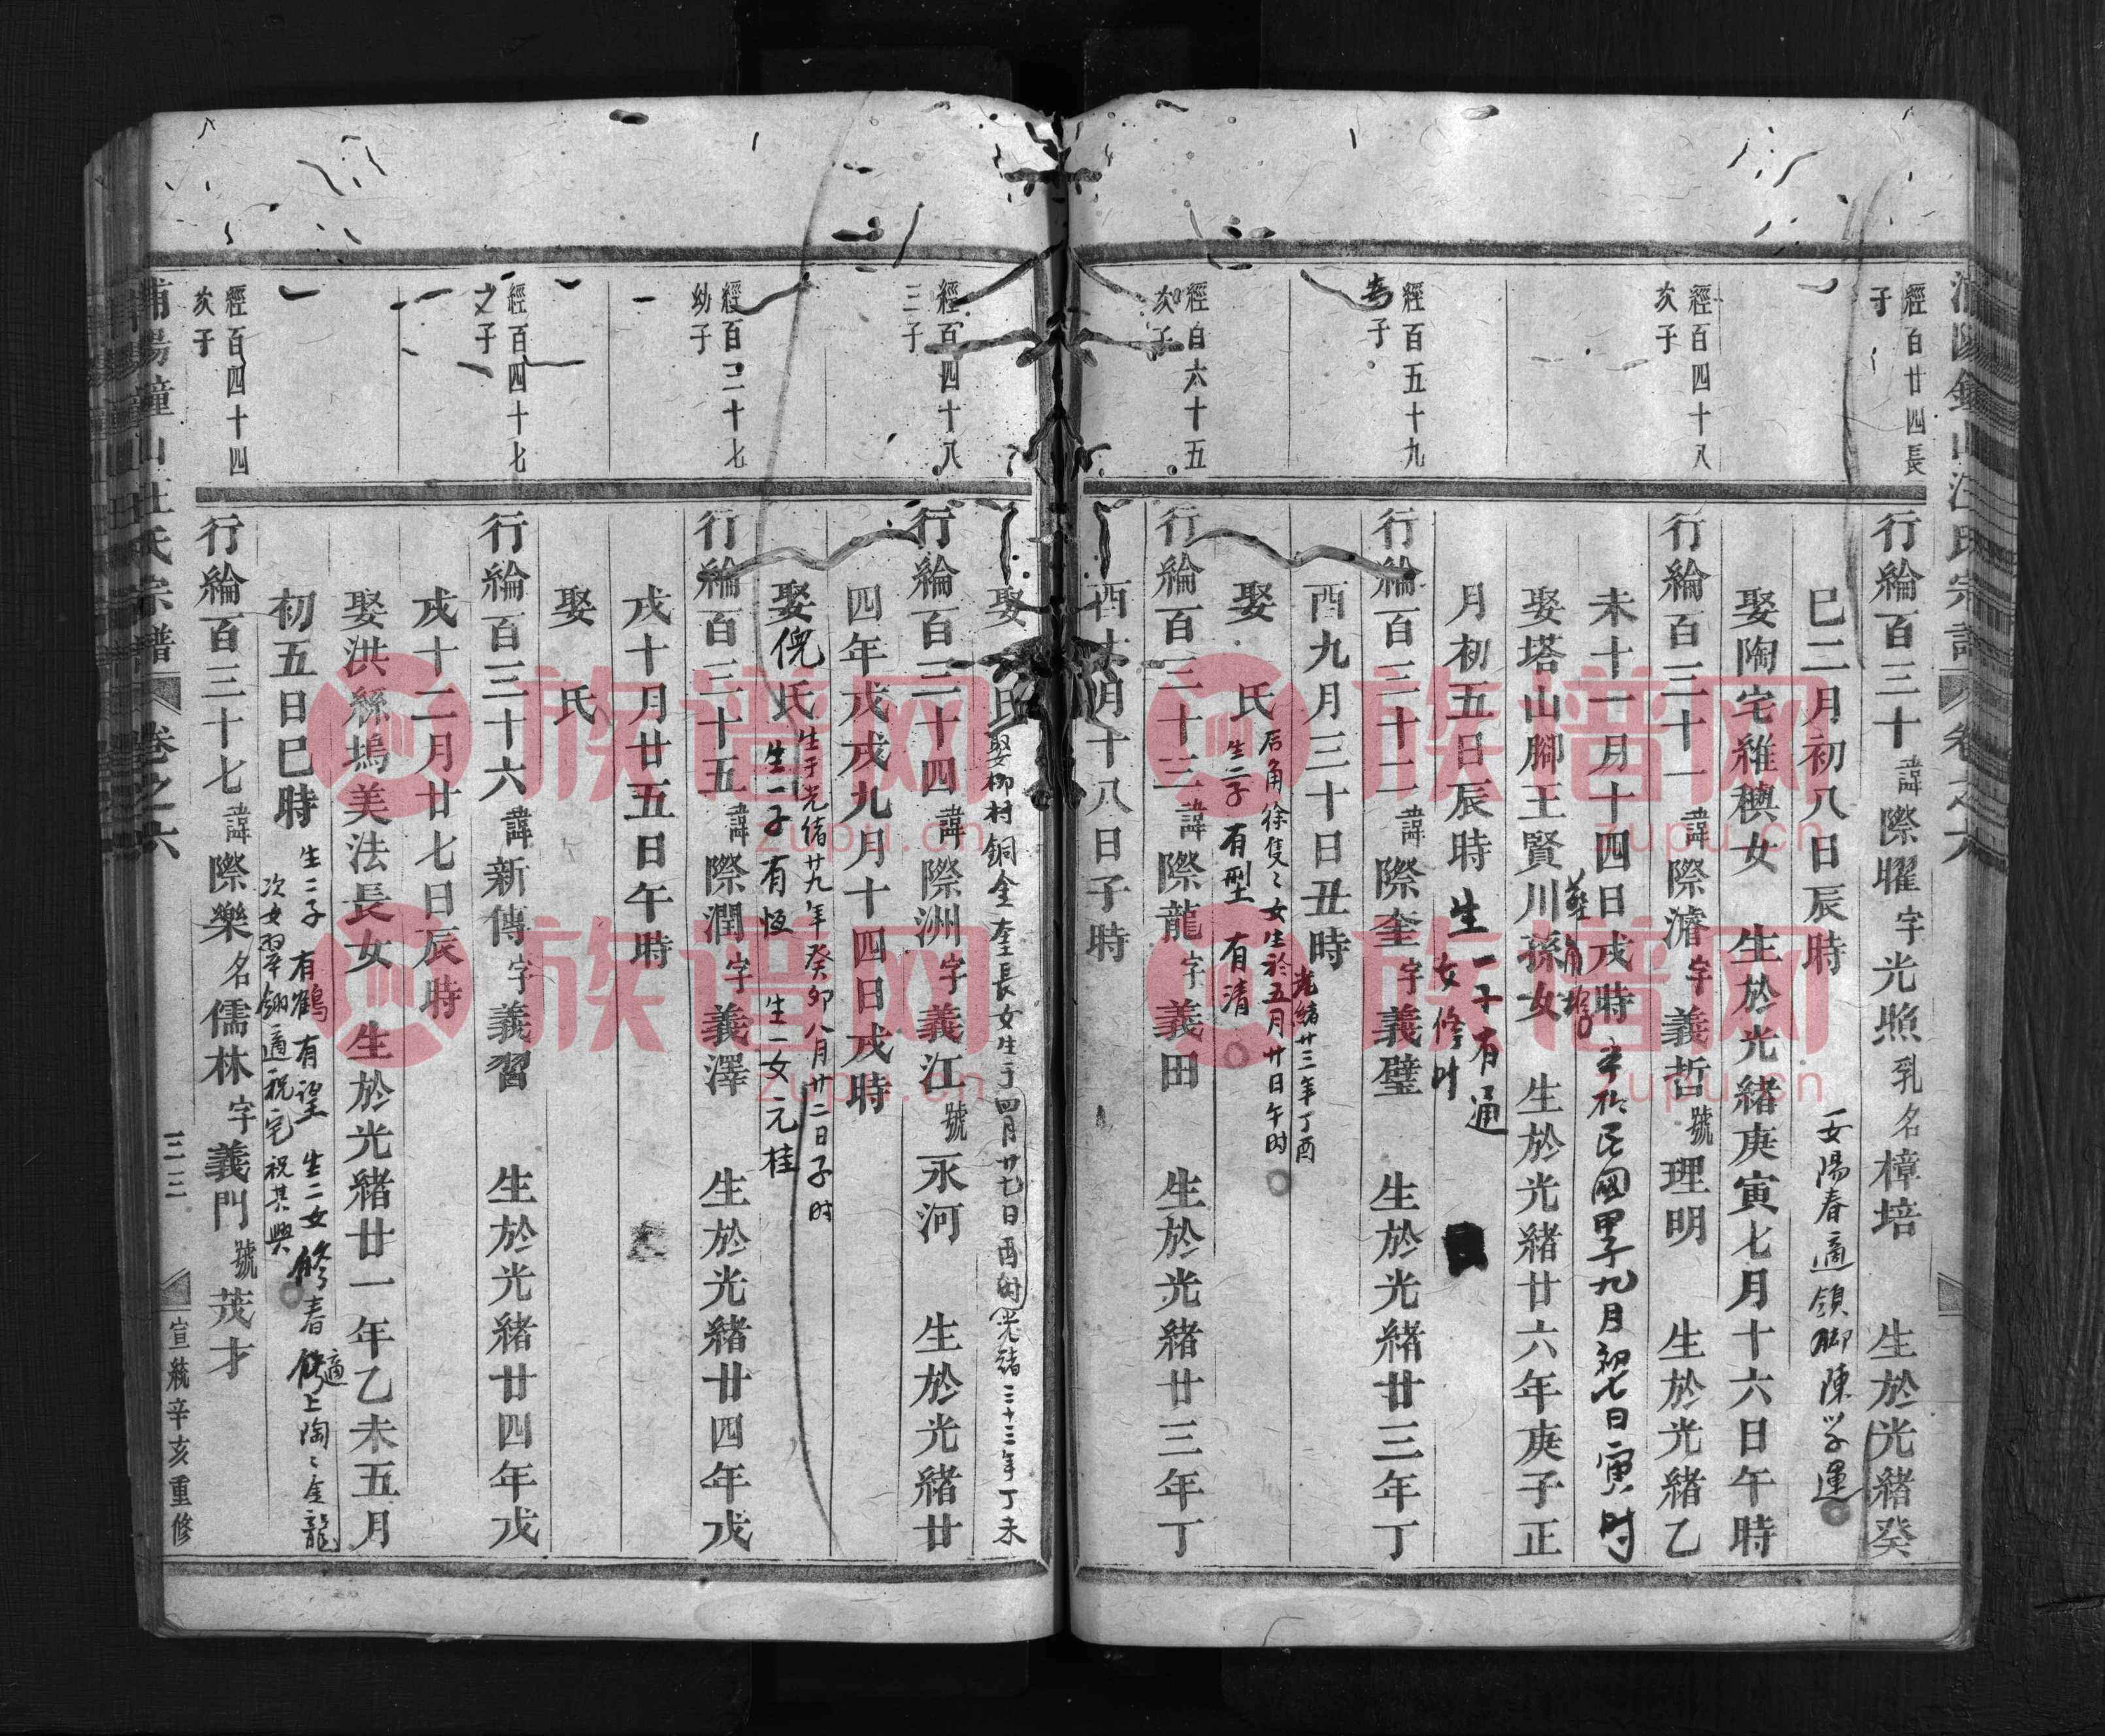 經百廿四長
子
行綸百三十諱際曜字光照乳名樟培 生於光緒癸
巳二月初八日辰時
女陽春適領脚陳学運
娶陶宅雜穓女 生於光緒庚寅七月十六日午時
經百四十八
次子
行綸百三十一諱際濬字義哲號理明 生於光緒乙
未十一月十四日戌時
卒於民國甲子九月初七日寅时
娶塔山腳王賢川孫女 生於光緒廿六年庚子正
月初五日辰時
生一子有通
女修叶
經百五十九
子
行綸百三十二諱際奎字義璧 生於光緒廿三年丁
酉九月三十日丑時
娶 氏
后角徐隻〻女生於五月廿日午时
光緒廿三年丁酉
生二子有型 有清
經百六十五
次子
行綸百三十三諱際龍字義田 生於光緒廿三年丁
酉十月十八日子時
娶 氏
娶柳村銅金奎長女生于四月廿七日酉时光緒三十三年丁未
經百四十八
三子
行綸百三十四諱際洲字義江號永河 生於光緒廿
四年戊戌九月十四日戌時
娶倪氏
生于光緒廿九年癸卯八月廿二日子时
生一子有恆 生一女元桂
經百二十七
幼子
行綸百三十五諱際潤字義澤 生於光緒廿四年戊
戌十月廿五日午時
娶 氏
經百四十七
之子
行綸百三十六諱新傳字義習 生於光緒廿四年戊
戌十二月廿七日辰時
娶洪絲塢美法長女 生於光緒廿一年乙未五月
初五日巳時
生二子有鶴 有望 生二女修春 修上適陶〻金龍
次女翠翎適祝宅祝其興
經百四十四
次子
行綸百三十七諱際樂名儒林字義門號茂才
宗譜
卷之六
三三
宣統辛亥重修
族谱网
zupu.cn
族谱网
zupu.cn
族谱网
zupu.cn
族谱网
zupu.cn